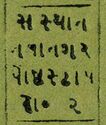 સંસ્થાન
નવાનગર
પોસ્ટેજ
ડો૦ ૨